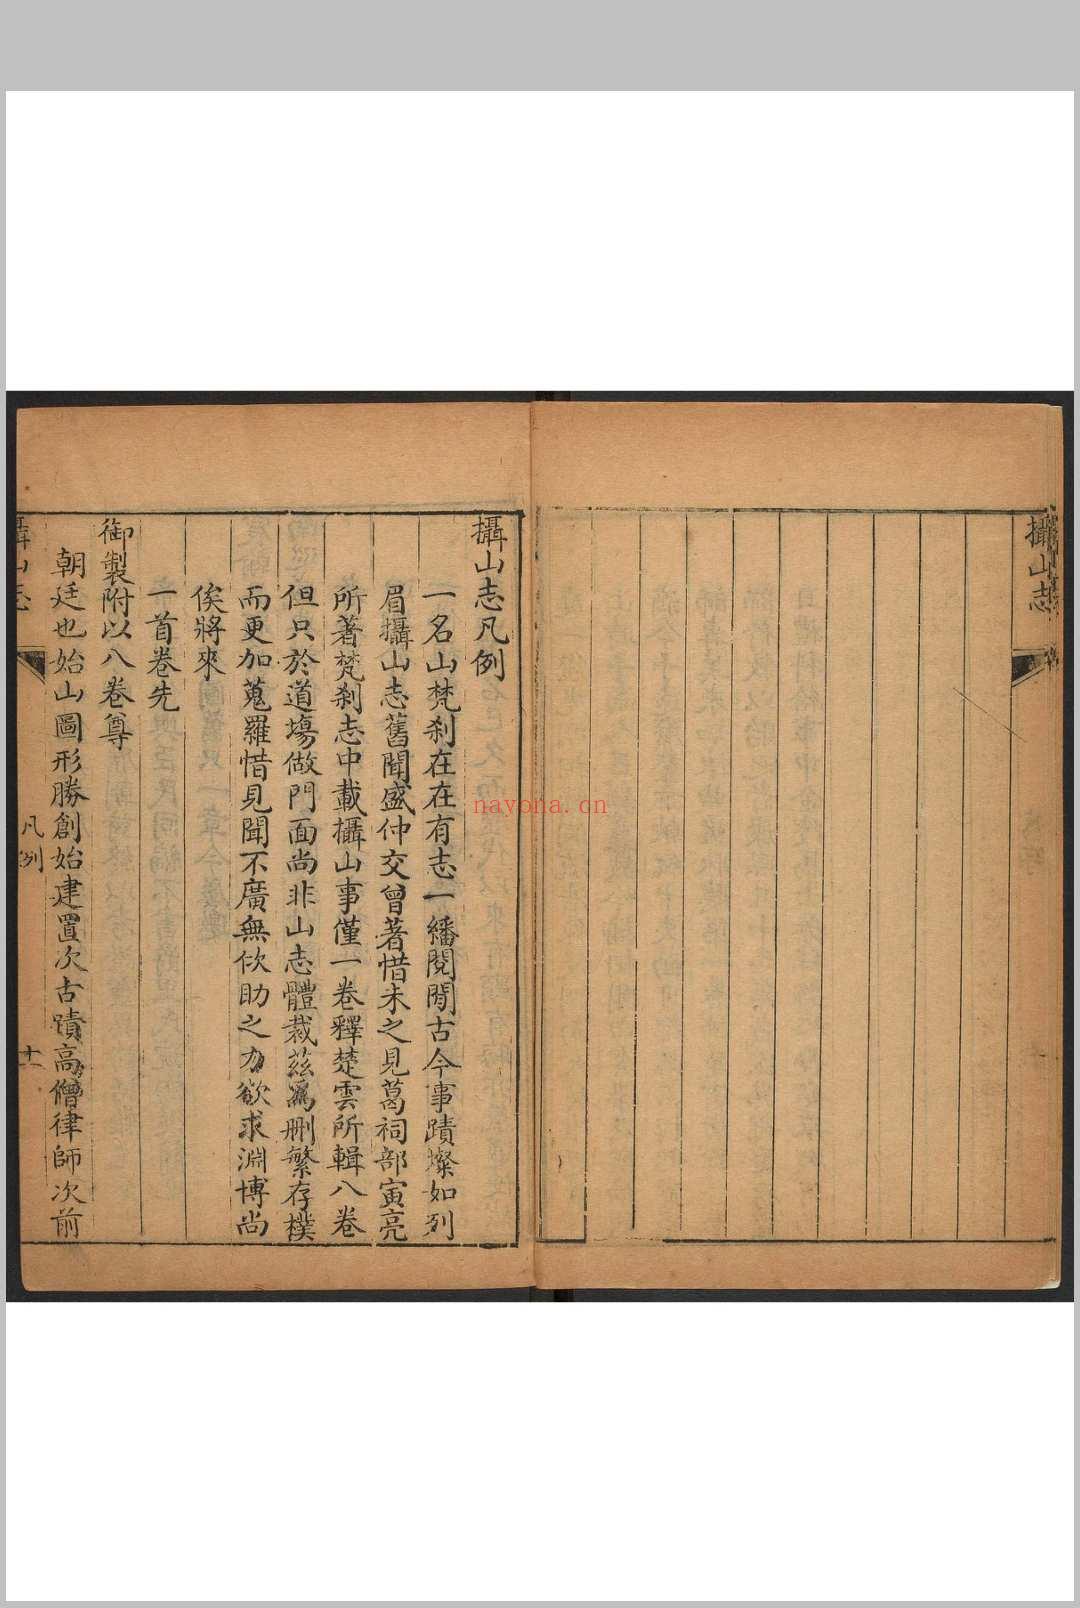 攝山志
攝山志凡例
一名山梵刹在在有志一繙閱閒古今事蹟燦如列
眉攝山志舊聞盛仲交曾著惜未之見葛祠部寅亮
所著梵刹志中載攝山事僅一卷釋楚雲所輯八卷
但只於道塲做門面尚非山志體裁茲爲刪繁存樸
而更加蒐羅惜見聞不廣無佽助之力欲求淵博尚
俟將來
一首卷先
御製附以八卷尊
朝廷也始山圖形勝創始建置次古蹟高僧律師次前
攝山志
凡例
十一
nayona.cn